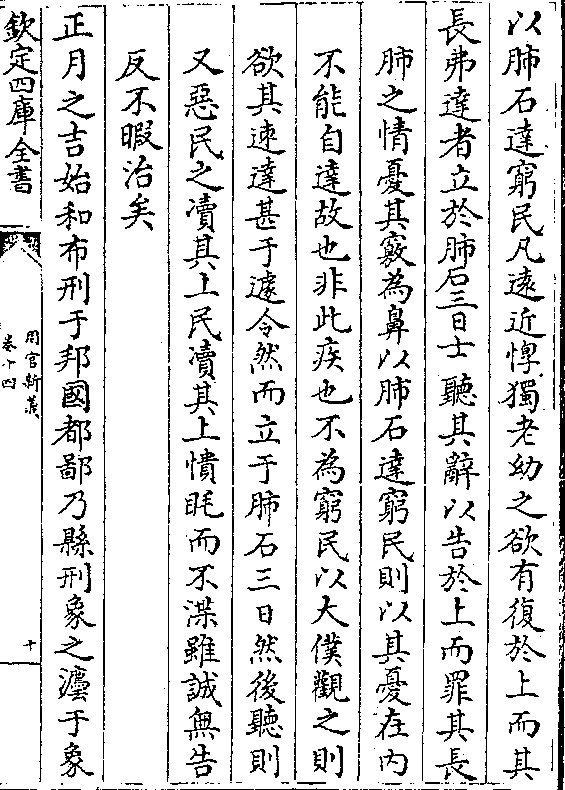 以肺石達窮民凡遠近惸獨老幼之欲有復於上而其
長弗達者立於肺石三日士聽其辭以告於上而罪其長
肺之情憂其竅為鼻以肺石達窮民則以其憂在内
不能自達故也非此疾也不為窮民以大僕觀之則
欲其速達甚于遽令然而立于肺石三日然後聽則
又惡民之凟其上民凟其上憒眊而不渫雖誠無告
反不暇治矣
正月之吉始和布刑于邦國都鄙乃縣刑象之灋于象
欽定四庫全書
周官新義
卷十四
十